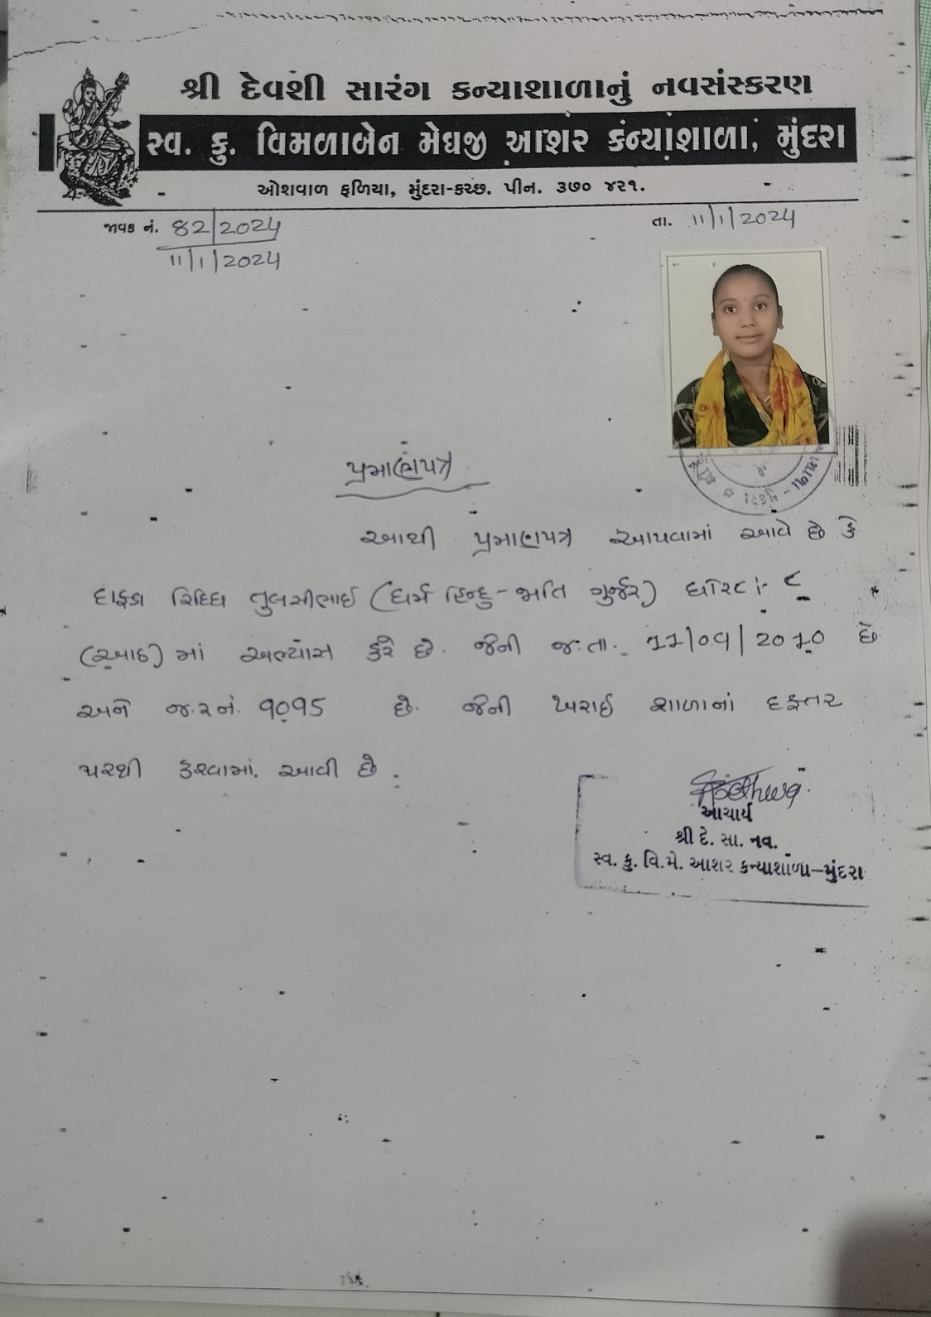 શ્રી દેવશી સારંગ કન્યાશાળાનું નવસંસ્કરણ
સ્વ. કુ. વિમળાબેન મેઘજી આશર કન્યાશાળા, મુંદરા
ઓશવાળ ફળિયા, મુંદરા-કચ્છ. પીન. ૩૭૦ ૪૨૧.
જાવક નં. 82/2024
11/1/2024
તા. 11/1/2024
પ્રમાણપત્ર
આથી પ્રમાણપત્ર આપવામાં આવે છે કે
દાફડા રિદ્ધિ તુલસીભાઈ (ધર્મ હિન્દુ - જાતિ ગુર્જર) ધોરણ :- ૮
(આઠ) માં અભ્યાસ કરે છે. જેની જ.તા. 11/09/2010 છે
અને જ.ર.નં. 9095 છે. જેની ખરાઈ શાળાનાં દફતર
પરથી કરવામાં આવી છે.
આચાર્ય
શ્રી દે. સા. નવ.
સ્વ. કુ. વિ.મે. આશર કન્યાશાળા–મુંદરા